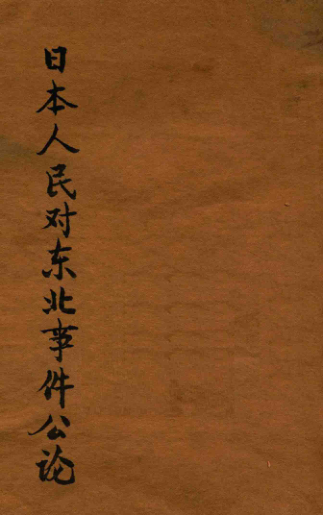 日本人民对东北事件公论